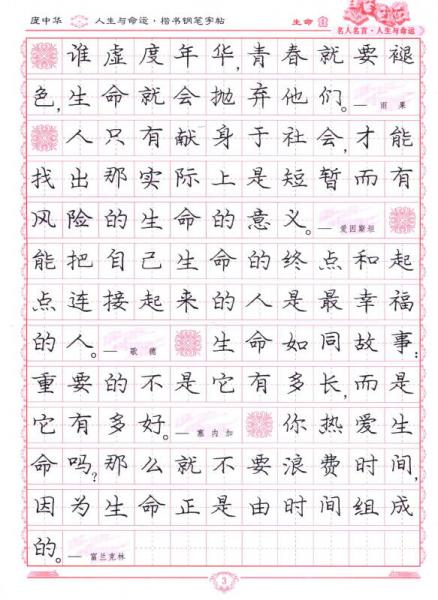 庞中华 人生与命运·楷书钢笔字帖 生命
名人名言·人生与命运
谁虚度年华,青春就要褪
色,生命就会抛弃他们。— 雨果
人只有献身于社会,才能
找出那实际上是短暂而有
风险的生命的意义。— 爱因斯坦
能把自己生命的终点和起
点连接起来的人是最幸福
的人。— 歌德 生命如同故事:
重要的不是它有多长,而是
它有多好。— 塞内加 你热爱生
命吗?那么就不要浪费时间,
因为生命正是由时间组成
的。— 富兰克林
3